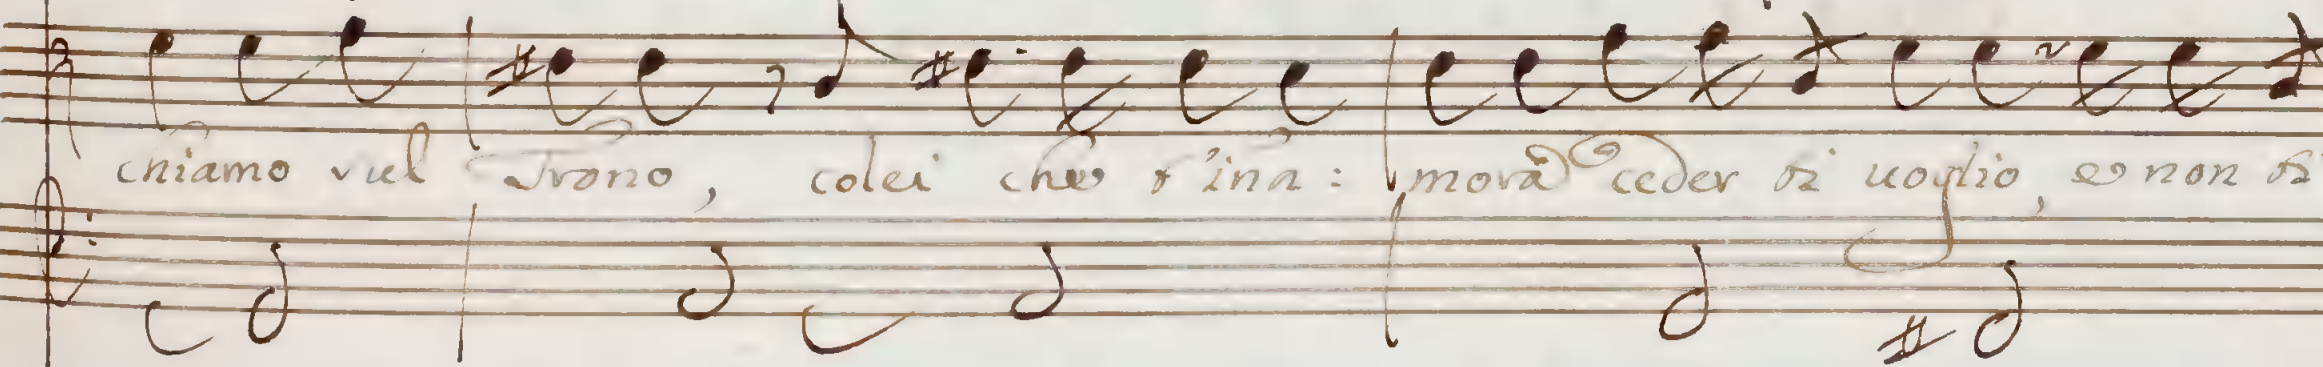 chiamo sul Trono, colei che t'ina: morà ceder ti uoglio, e non ti